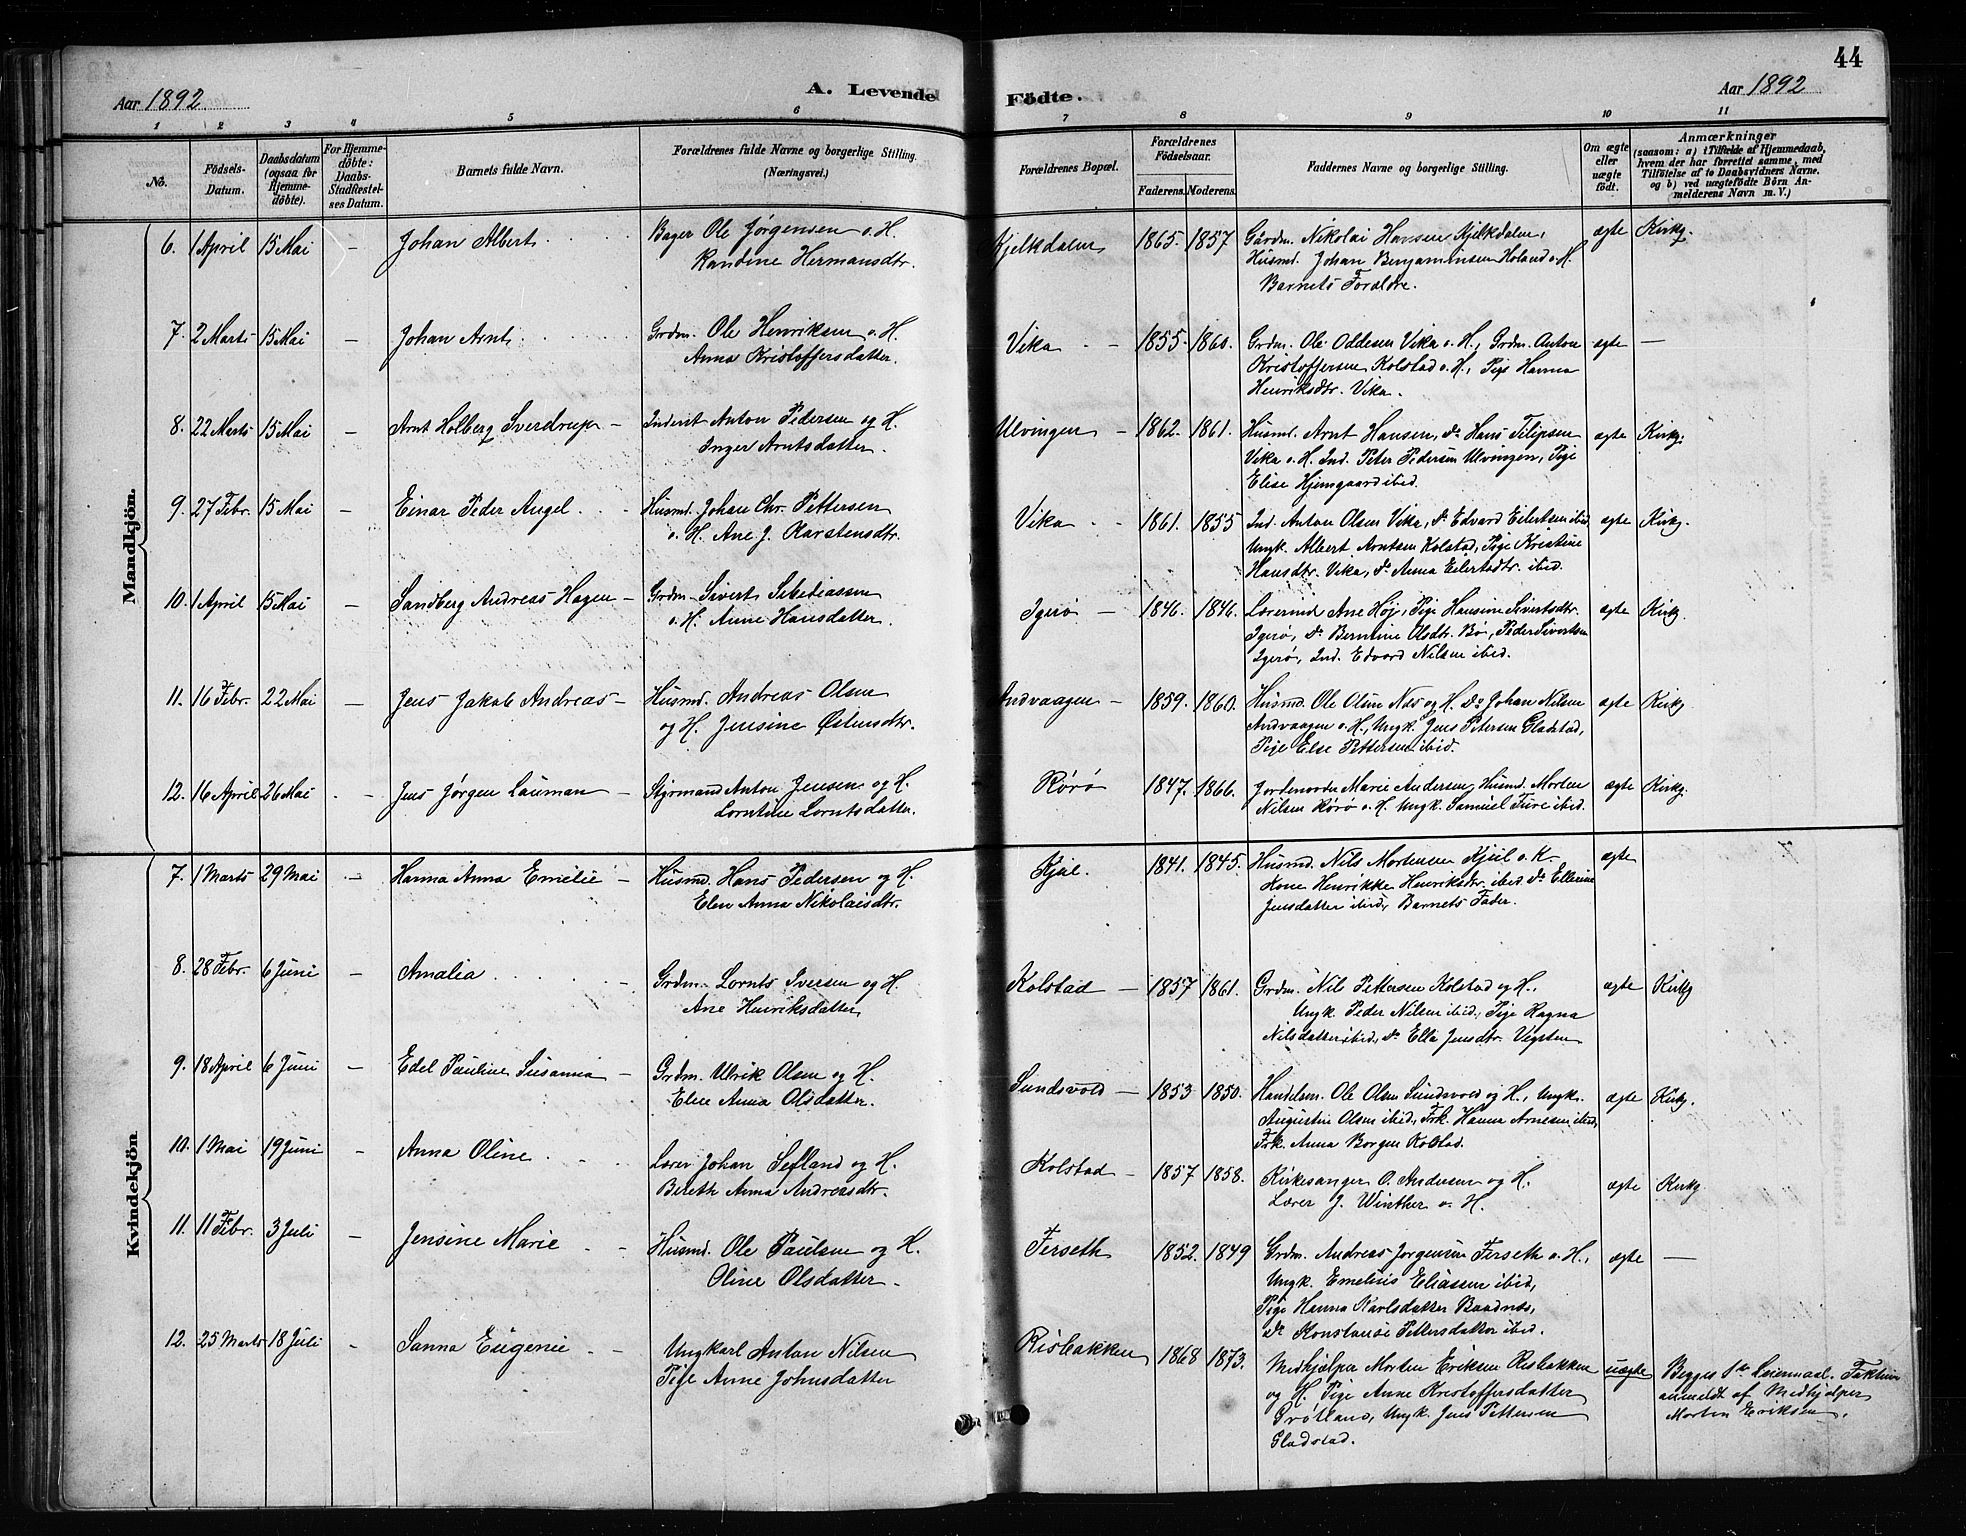 44
Aar 1892
A. Levende Födte.
Aar 1892
1 2 3 4 5 6 7 8 9 10 11
No.
Födsels-Datum.
Daabsdatum (ogsaa for Hjemme-döbte).
For Hjemme-döbte: Daabs-Stadfæstel-ses Datum.
Barnets fulde Navn.
Forældrenes fulde Navne og borgerlige Stilling. (Næringsvei.)
Forældrenes Bopæl.
Forældrenes Födselsaar.
Faderens. Moderens.
Faddernes Navne og borgerlige Stilling.
Om ægte eller uægte födt.
Anmærkninger
(saasom: a) i Tilfælde af Hjemmedaab, hvem der har forrettet samme, med Tilföielse af to Daabsvidners Navne. og b) ved uægtefödte Börn Anmelderens Navn m. V.)
Mandkjön.
6. 1 April 15 Mai — Johan Albert Bager Ole Jørgensen o. H. Kjelkdalen 1865. 1857 Gårdm. Nikolai Hansen Kjelkdalen, ægte Kirkg.
Randine Hermansdtr. Husmd. Johan Benjaminsen Holand o. H.
Barnets Forældre.
7. 2 Marts 15 Mai — Johan Arnt Grdm. Ole Henriksen o. H. Vika 1855. 1860. Grdm. Ole Oddesen Vika o. H., Grdm. Anton ægte —
Anna Kristoffersdatter. Kristoffersen Kolstad o. H., Pige Hanna
Henriksdtr. Vika.
8. 22 Marts 15 Mai — Arnt Holberg Sverdrup — Inderst Anton Pedersen og H. Ulvingen — 1862. 1861. Husmd. Arnt Hansen, do Hans Filipsen ægte Kirkg.
Inger Arntsdatter. Vika o. H. Ind. Peter Pedersen Ulvingen, Pige
Elise Hjemgaard ibid.
9. 27 Febr. 15 Mai — Einar Peder Angel. Husmd. Johan Chr. Pettersen Vika 1861. 1855 Ind. Anton Olsen Vika, do Edvard Eilertsen ibid ægte Kirkg.
o. H. Ane J. Karstensdtr. Ungk. Albert Arntsen Kolstad, Pige Kristine
Hansdtr. Vika, do Anna Eilertsdtr. ibid.
10. 1 April 15 Mai — Sandberg Andreas Hagen — Grdm. Sivert Sebediassen Igerø — 1846. 1846. Lærerind Ane Høj, Pige Hansine Sivertsdtr. ægte Kirkg.
o. H. Anne Hansdatter. Igerø, do Berntine Olsdtr. Bø, Peder Sivertsen
Igerø, Ind. Edvard Nilsen ibid.
11. 16 Febr. 22 Mai — Jens Jakob Andreas — Husmd. Andreas Olsen Andvaagen — 1859. 1860. Husmd. Ole Olsen Nes og H. do Johan Nilsen ægte Kirkg
og H. Jensine Østensdtr. Andvaagen o. H., Ungk. Jens Petersen Gladstad,
Pige Else Pettersen ibid.
12. 16 April 26 Mai — Jens Jørgen Lauman — Styrmand Anton Jensen og H. Rørø 1847. 1866. Jordemoder Marie Andersen, Husmd. Morten ægte Kirkg.
Lorntine Lorntsdatter. Nilsen Rørø o. H. Ungk. Samuel Ture ibid.
Kvindekjön
7. 1 Marts 29 Mai — Hanna Anna Emelie — Husmd. Hans Pedersen og H. Kjul. 1841. 1845. Husmd. Nils Mortensen Kjul o. K. ægte
Elen Anna Nikolaisdtr. Kone Henrikke Henriksdtr. ibid. do Ellerine
Jensdatter ibid, Barnets Fader.
8. 28 Febr. 6 Juni — Amalia Grdm. Lornts Iversen og H. Kolstad — 1857 1861. Grdm. Nils Pettersen Kolstad og H., ægte Kirkg
Ane Henriksdatter Ungk. Peder Nilsen ibid, Pige Ragna
Nilsdatter ibid, do Ella Jensdtr. Vegsten
9. 18 April 6 Juni — Edel Pauline Susanna — Grdm. Ulrik Olsen og H. Sundsvold — 1853 1850. Handelsm. Ole Olsen Sundsvold og H., Ungk. ægte Kirkg.
Elen Anna Olsdatter. Augustin Olsen ibid, Frk. Hanna Arnesen ibid,
Frk. Anna Borgen Kolstad.
10. 1 Mai 19 Juni — Anna Oline Lærer Johan Sefland og H. Kolstad — 1857 1858. Kirkesanger O. Andersen og H. ægte Kirkg
Bereth Anna Andreasdtr. Lærer J. Winther o. H.
11. 11 Febr. 3 Juli — Jensine Marie Husmd. Ole Paulsen og H. Ferseth 1852. 1849 Grdm. Andreas Jørgensen Ferseth o. H., ægte —
Oline Olsdatter — Ungk. Emelius Eliassen ibid,
Pige Hanna Karlsdatter Baadnes,
do Konstanse Pettersdatter ibid.
12. 25 Marts 18 Juli — Sanna Eugenie Ungkarl Anton Nilsen Risbakken 1868 1873. Medhjælper Morten Eriksen Risbakken uægte Begges 1ste Leiermaal. Faktum
Pige Anne Johnsdatter og H. Pige Anne Kristoffersdatter anmeldt af Medhjælper
Grøtland, Ungk. Jens Pettersen Morten Eriksen.
Gladstad.